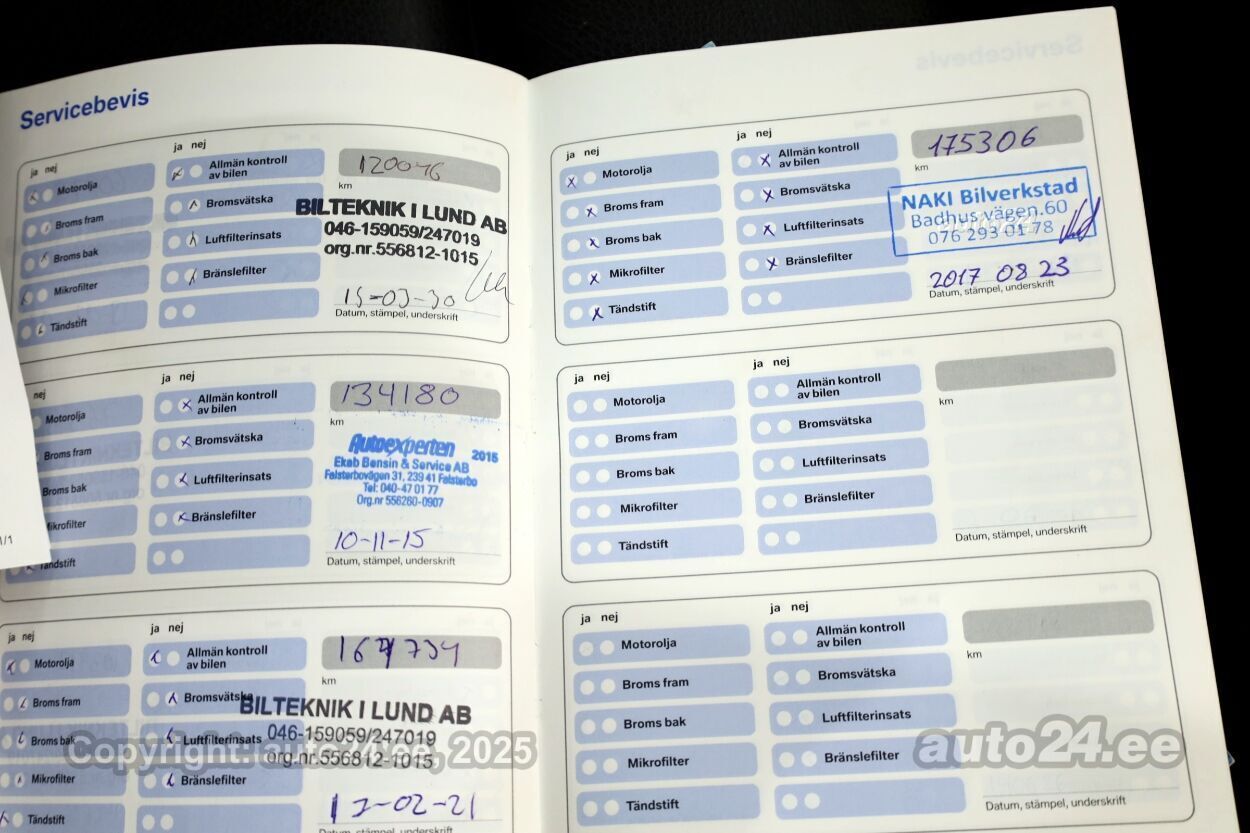 Servicebevis
ja nej
Motorolja
Broms fram
Broms bak
Mikrofilter
Tändstift
ja nej
Allmän kontroll
av bilen
Bromsvätska
Luftfilterinsats
Bränslefilter
120046
km
BILTEKNIK I LUND AB
046-159059/247019
org.nr.556812-1015
15-03-30
Datum, stämpel, underskrift
nej
Motorolja
Broms fram
Broms bak
Mikrofilter
Tändstift
ja nej
Allmän kontroll
av bilen
Bromsvätska
Luftfilterinsats
Bränslefilter
134180
km
Autoexperten 2015
Ekab Bensin & Service AB
Falsterbovägen 31, 239 41 Falsterbo
Tel: 040-47 01 77
Org.nr 556260-0907
10-11-15
Datum, stämpel, underskrift
1/1
ja nej
Motorolja
Broms fram
Broms bak
Mikrofilter
Tändstift
ja nej
Allmän kontroll
av bilen
Bromsvätska
Luftfilterinsats
Bränslefilter
km
BILTEKNIK I LUND AB
046-159059/247019
org.nr.556812-1015
17-02-21
Datum, stämpel, underskrift
ja nej
Motorolja
Broms fram
Broms bak
Mikrofilter
Tändstift
ja nej
Allmän kontroll
av bilen
Bromsvätska
Luftfilterinsats
Bränslefilter
175306
km
NAKI Bilverkstad
Badhus vägen.60
076 293 01 78
2017 08 23
Datum, stämpel, underskrift
ja nej
Motorolja
Broms fram
Broms bak
Mikrofilter
Tändstift
ja nej
Allmän kontroll
av bilen
Bromsvätska
Luftfilterinsats
Bränslefilter
km
Datum, stämpel, underskrift
ja nej
Motorolja
Broms fram
Broms bak
Mikrofilter
Tändstift
ja nej
Allmän kontroll
av bilen
Bromsvätska
Luftfilterinsats
Bränslefilter
km
Datum, stämpel, underskrift
Copyright: auto24.ee, 2025
auto24.ee